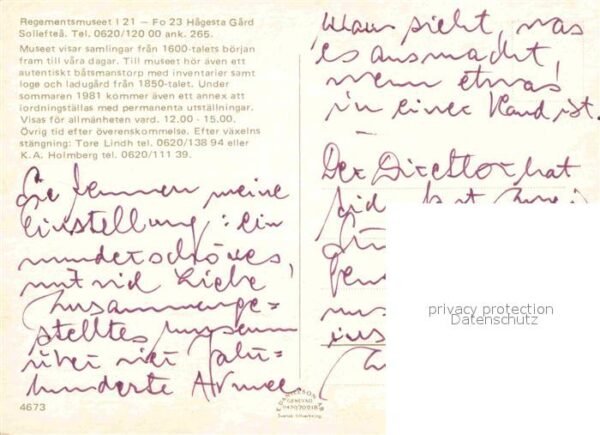 Regementsmuseet I 21 – Fo 23 Hågesta Gård
Sollefteå. Tel. 0620/120 00 ank. 265.
Museet visar samlingar från 1600-talets början
fram till våra dagar. Till museet hör även ett
autentiskt båtsmanstorp med inventarier samt
loge och ladugård från 1850-talet. Under
sommaren 1981 kommer även ett annex att
iordningställas med permanenta utställningar.
Visas för allmänheten vard. 12.00 - 15.00.
Övrig tid efter överenskommelse. Efter växelns
stängning: Tore Lindh tel. 0620/138 94 eller
K.A. Holmberg tel. 0620/111 39.
Sie kennen meine
Einstellung: ein
wunderschönes,
mit viel Liebe
zusammenge=
stelltes Museum
über vier Jahr=
hunderte Armee
4673
Man sieht, was
es ausmacht,
wenn etwas
in einer Hand ist.
Der Direktor hat
privacy protection
Datenschutz